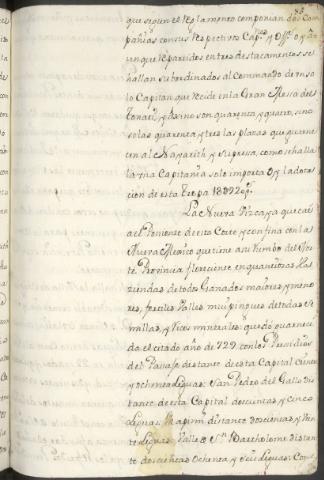 que segun el reglamento componian dos Com
pañias consus respectivos Cap.nes y Off.s oy a
un que reparidos entres destacamentos se
hallan subordinados al Commando de un so
lo Capitan que recide en la Gran Mesa del
Tonati, y asi no son quarenta y quatro, sino
solas quarenta y tres las plazas que guarne
cen al Nayarith y su presa, como se halla
la tha Capitania solo importa oy la dota
cion de esta Tropa 18092 p.s
La Nueva Vizcaya que cae
al Poniente de esta Corte y confina con la
Nueva Mexico que tiene a su rumbo del Nor
te Provincia floreciente en quantiosas Ha
ziendas de todos Ganados maiores y meno
res, fertiles Valles mui pingues de todas Se
millas, y Ricos minerales: quedó guarneci
da el citado año de 729. con los Presidios
del Pasaje distante de esta Capital Ciento
y ochenta Leguas: San Pedro del Gallo dis
tante de esta Capital doscientas y cinco
Leguas: Mapimi distante doscientas y Vein
te Leguas: Valle de Sn. Bartholome distan
te doscientas Ochenta y seis Leguas: Conc